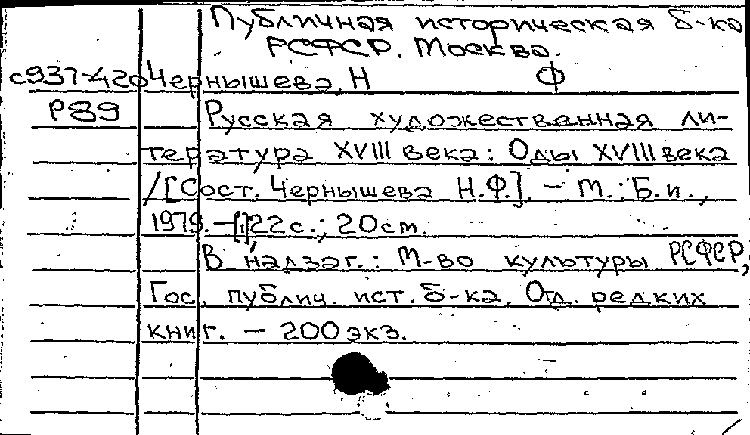 Публичная историческая б-ка
РСФСР. Москва.
с937-420 Чернышева, Н Ф
Р89 Русская художественная ли-
тература XVIII века: Оды XVIII века
/[Сост. Чернышева Н.Ф.]. – М.: Б.и.,
1979. – [1] 22 с.; 20 см.
В надзаг.: М-во культуры РСФСР,
Гос. публич. ист. б-ка. Отд. редких
книг. – 200 экз.